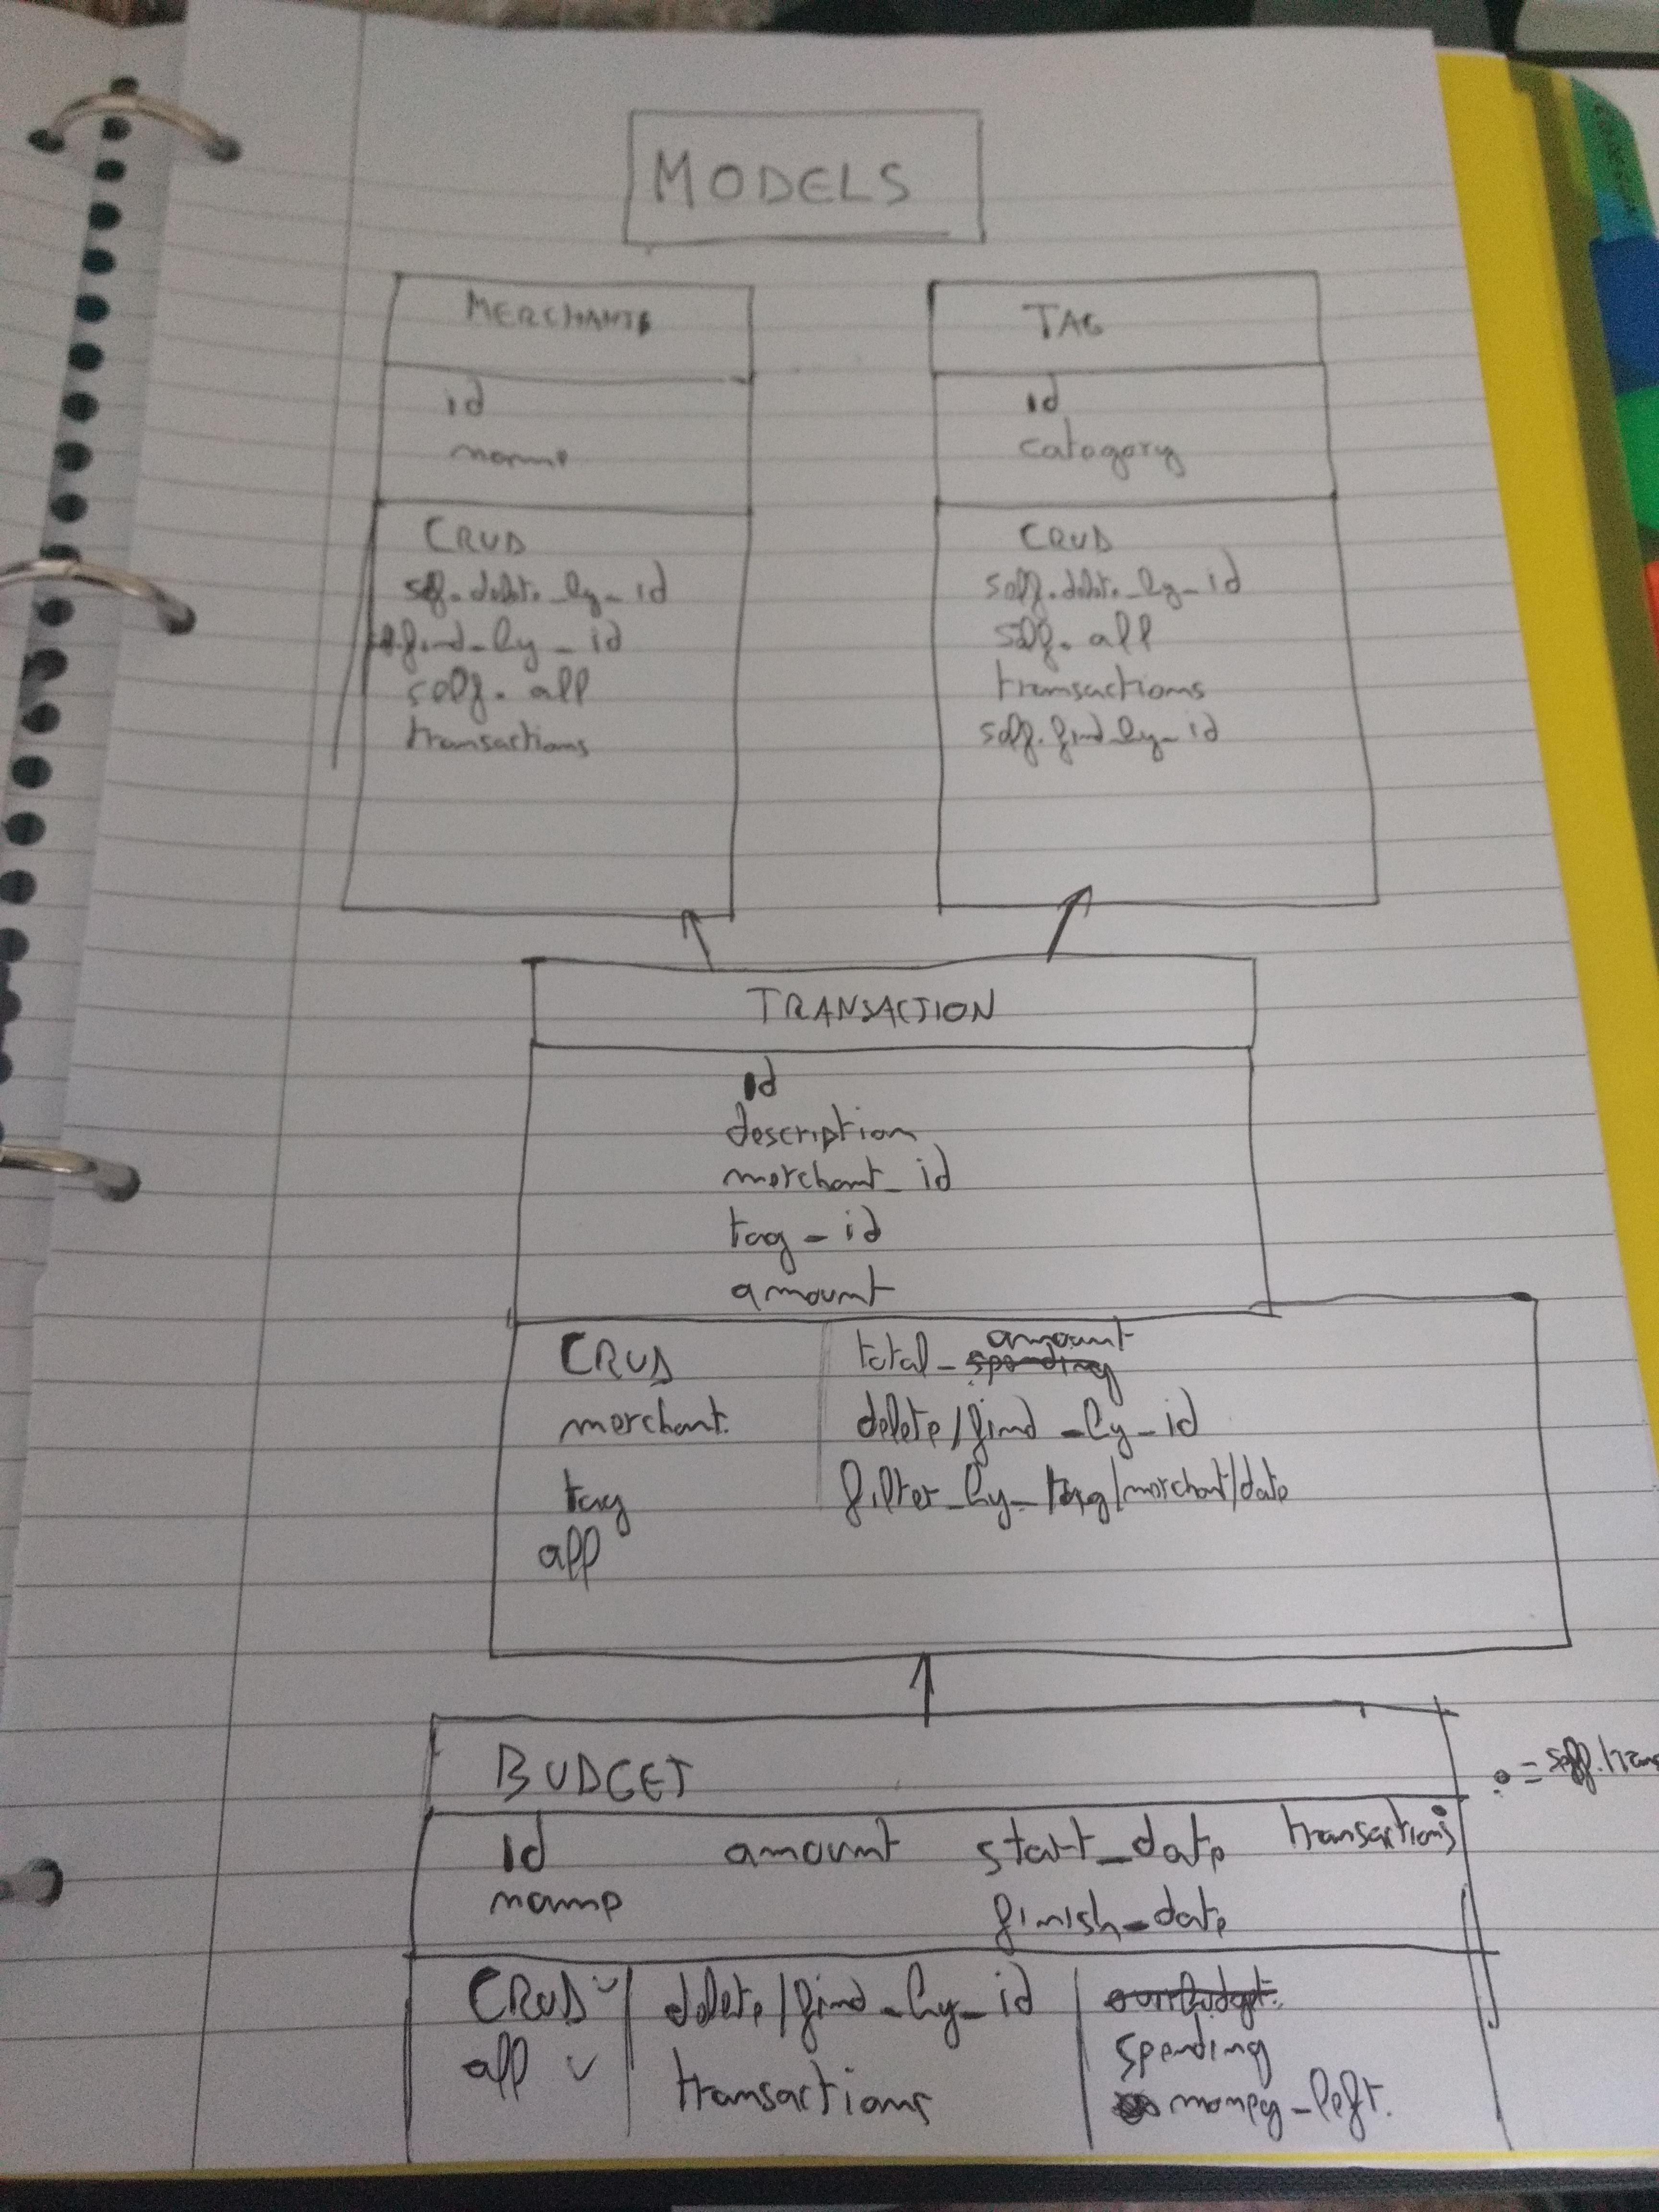 MODELS
MERCHANTS
id
name
CRUD
self.delete_by_id
find_by_id
self.all
transactions
TAG
id
catagory
CRUD
self.delete_by_id
self.all
transactions
self.find_by_id
TRANSACTION
id
description
merchant_id
tag_id
amount
CRUD
merchant.
tag
all
amount
total_spending
delete/find_by_id
filter_by_tag/merchant/date
BUDGET
id amount start_date transactions
name finish_date
= self.trans
CRUD
all
delete/find_by_id
transactions
spending
money_left.